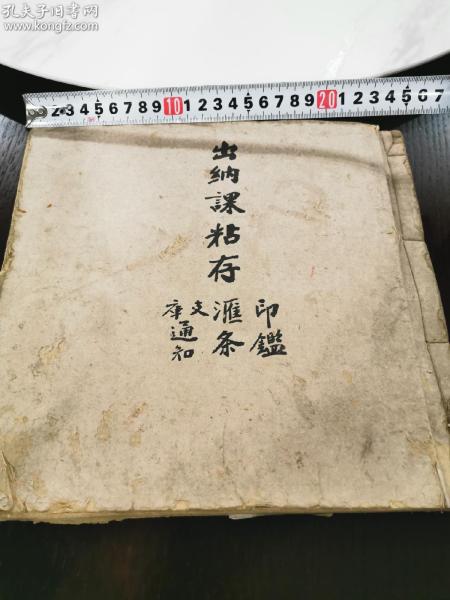 孔夫子旧书网
www.kongfz.com
2 3 4 5 6 7 8 9 10 1 2 3 4 5 6 7 8 9 20 1 2 3 4 5 6 7
出納課粘存
印鑑
滙条
支
庫通知